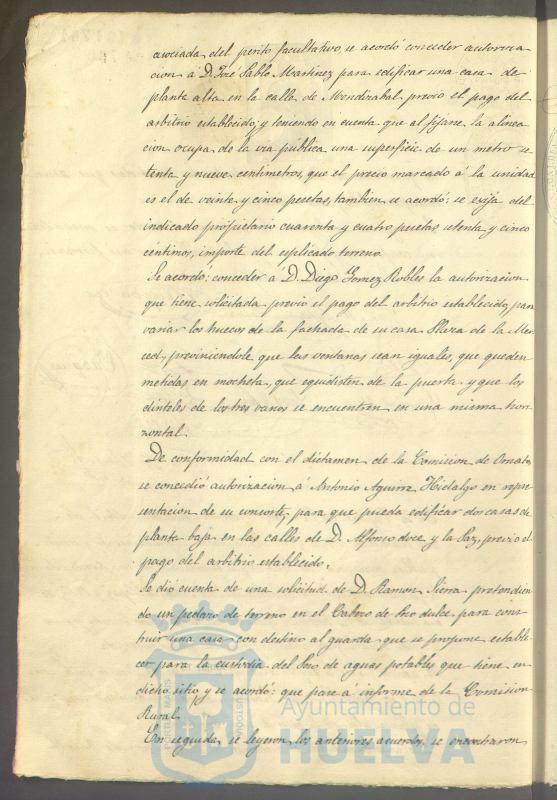 asociada del perito facultativo, se acordó conceder autoriza
cion á D. José Pablo Martinez para edificar una casa de
planta alta en la calle de Mendizabal previo el pago del
arbitrio establecido; y teniendo en cuenta que al fijarse la alinea
cion ocupa de la via pública una superficie de un metro se
tenta y nueve centimetros, que el precio marcado á la unidad
es el de veinte y cinco pesetas, tambien se acordó: se exija del
indicado propietario cuarenta y cuatro pesetas setenta y cinco
céntimos, importe del esplicado terreno.
Se acordó: conceder á D. Diego Gomez Robles la autorizacion
que tiene solicitada previo el pago del arbitrio establecido, para
variar los huecos de la fachada de su casa Plaza de la Mer
ced, previniendole que las ventanas sean iguales, que queden
metidas en mocheta, que equidisten de la puerta y que los
dinteles de los tres vanos se encuentren en una misma hori
zontal.
De conformidad con el dictamen de la Comision de Ornato,
se concedió autorizacion á Antonio Aguirre Hidalgo en repre
sentacion de su consorte, para que pueda edificar dos casas de
planta baja en las calles de D. Alfonso doce y la Paz, previo el
pago del arbitrio establecido.
Se dió cuenta de una solicitud de D. Ramon Sierra pretendien
do un pedazo de terreno en el Cabezo de Pino dulce, para cons
truir una casa con destino al guarda que se propone estable
cer para la custodia del Pozo de aguas potables que tiene en
dicho sitio, y se acordó: que pase á informe de la Comision
Rural.
En seguida se leyeron los anteriores acuerdos, se encontraron
Ayuntamiento de
HUELVA